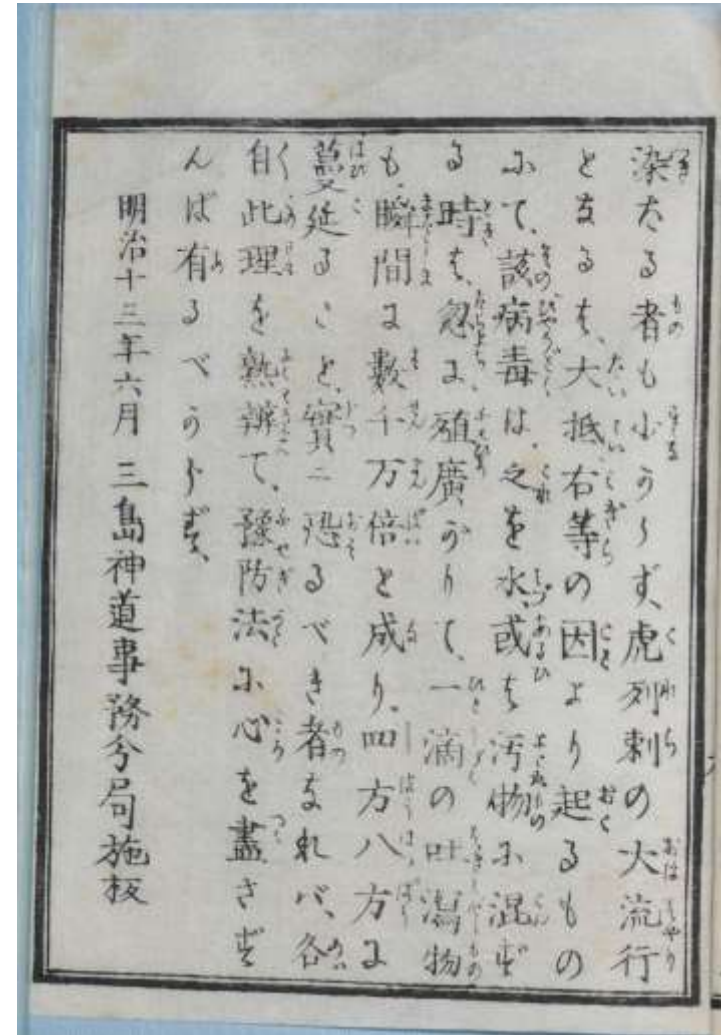 染たる者も少からず、虎列剌の大流行
となるは、大抵右等の因より起るもの
にて、該病毒は、之を水、或は汚物に混ず
る時は、忽に、殖廣がりて、一滴の吐瀉物
も、瞬間に數千万倍と成り、四方八方に
蔓延ること、實ニ恐るべき者なれバ、各
自此理を熟辨て、豫防法に心を盡さず
んば有るべからず、
明治十三年六月 三島神道事務分局施板